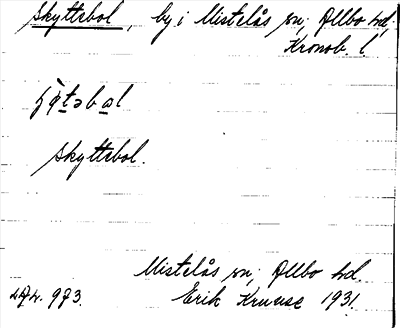 Skyttebol, by i Mistelås sn; Allbo hd;
Kronob. l.
Skyttebol.
Mistelås sn; Allbo hd.
Erik Kruuse 1931.